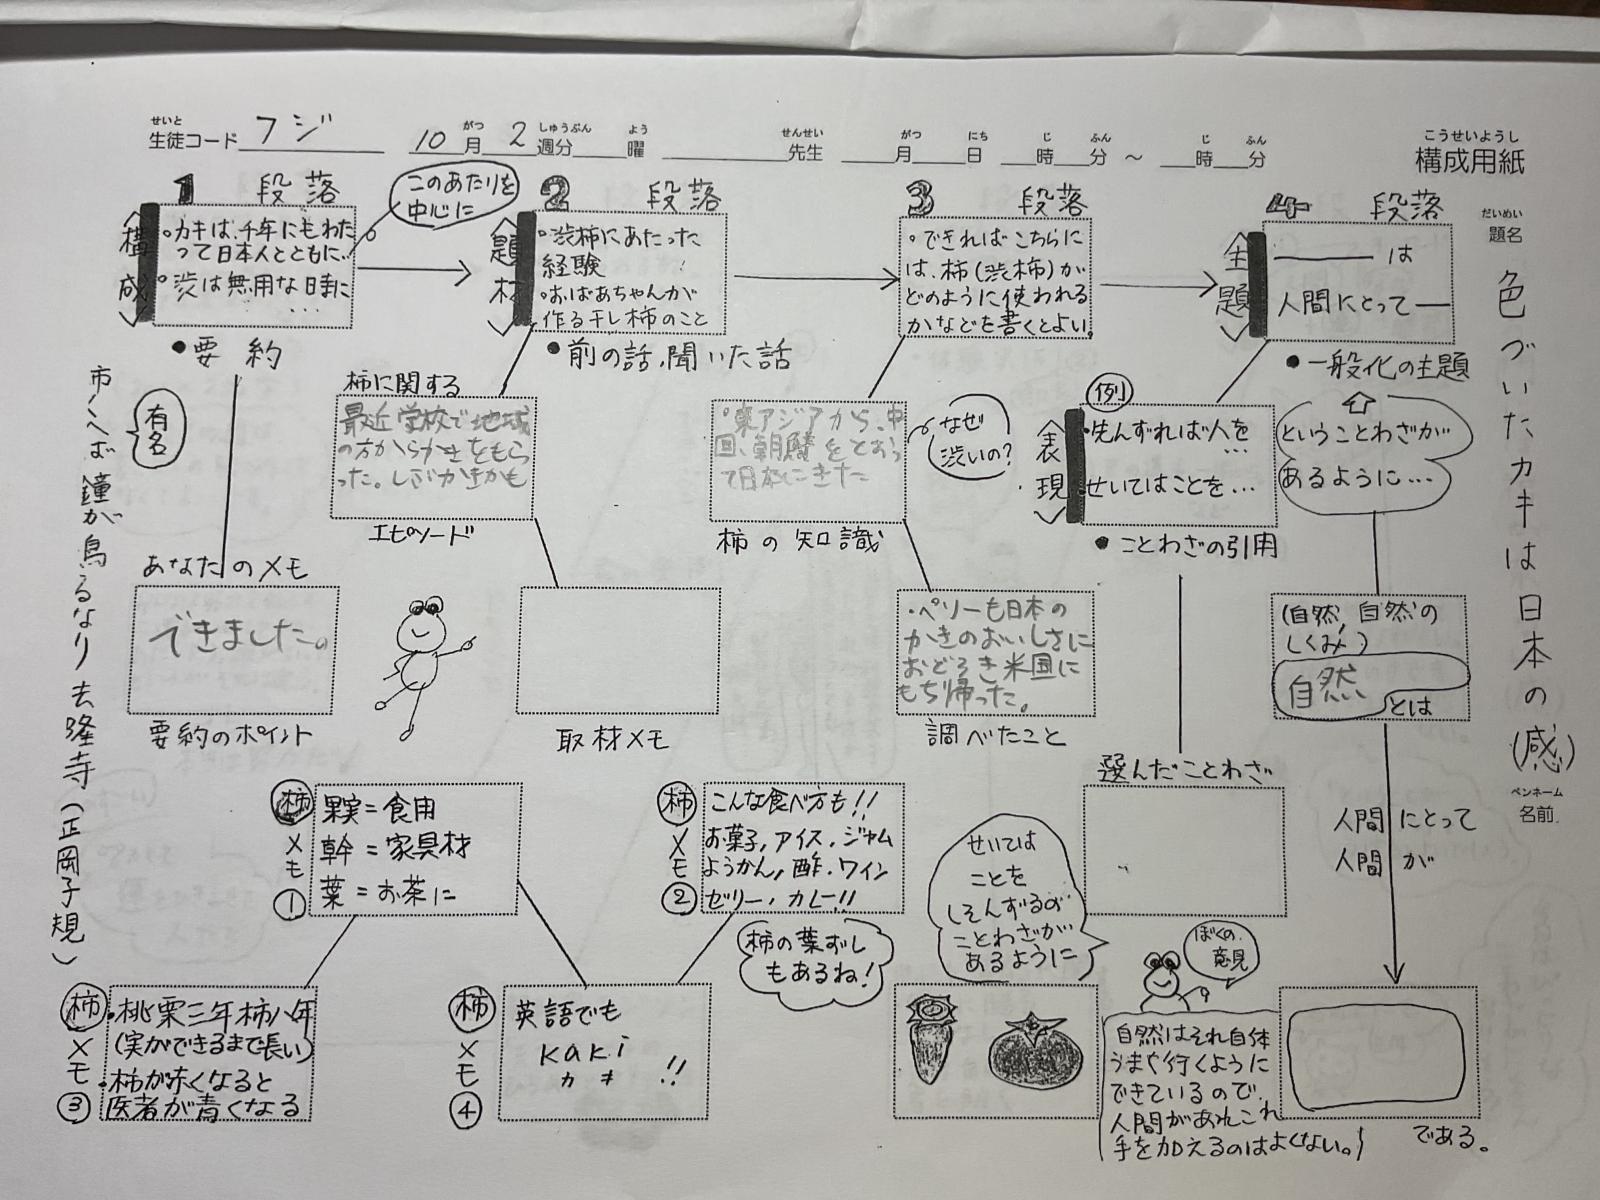 せいと
生徒コード フジ
10 がつ 月 2 しゅうぶん 週分 よう 曜 せんせい 先生 がつ 月 にち 日 じ 時 ふん 分 ～ じ 時 ふん 分
こうせいようし
構成用紙
だいめい
題名
色づいたカキは日本の(感)
ペンネーム
名前
1 段落
〈構成〉
・カキは、千年にもわた
って日本人とともに…
・渋は無用な時に
…
このあたりを
中心に
●要約
2 段落
〈題材〉
・渋柿にあたった
経験
・おばあちゃんが
作る干し柿のこと
●前の話、聞いた話
3 段落
・できればこちらに
は、柿(渋柿)が
どのように使われる
かなどを書くとよい。
4 段落
〈主題〉
――は
人間にとって―
●一般化の主題
市ノへば鐘が鳥るなり 去隆寺(正岡子規)
有名
柿に関する
最近学校で地域
の方からかきをもら
った。しぶがきかも
エピソード
・東アジアから、中
国、朝鮮をとおっ
て日本にきた
柿の知識
なぜ
渋いの?
例
〈表現〉
・先んずれば人を
…
せいてはことを…
●ことわざの引用
ということわざが
あるように…
あなたのメモ
できました。
要約のポイント
取材メモ
・ペリーも日本の
かきのおいしさに
おどろき米国に
もち帰った。
調べたこと
(自然、自然の
しくみ)
自然
とは
選んだことわざ
人間にとって
人間が
柿メモ①
果実＝食用
幹＝家具材
葉＝お茶に
柿メモ②
こんな食べ方も!!
お菓子,アイス,ジャム
ようかん,酢,ワイン
ゼリー,カレー!!
柿の葉ずし
もあるね!
せいては
ことを
しそんずるの
ことわざが
あるように
ぼくの
意見
柿メモ③
・桃栗三年柿八年
(実ができるまで長い)
・柿が赤くなると
医者が青くなる
柿メモ④
英語でも
kaki
カキ!!
自然はそれ自体
うまく行くように
できているので、
人間があれこれ
手を加えるのはよくない。
である。